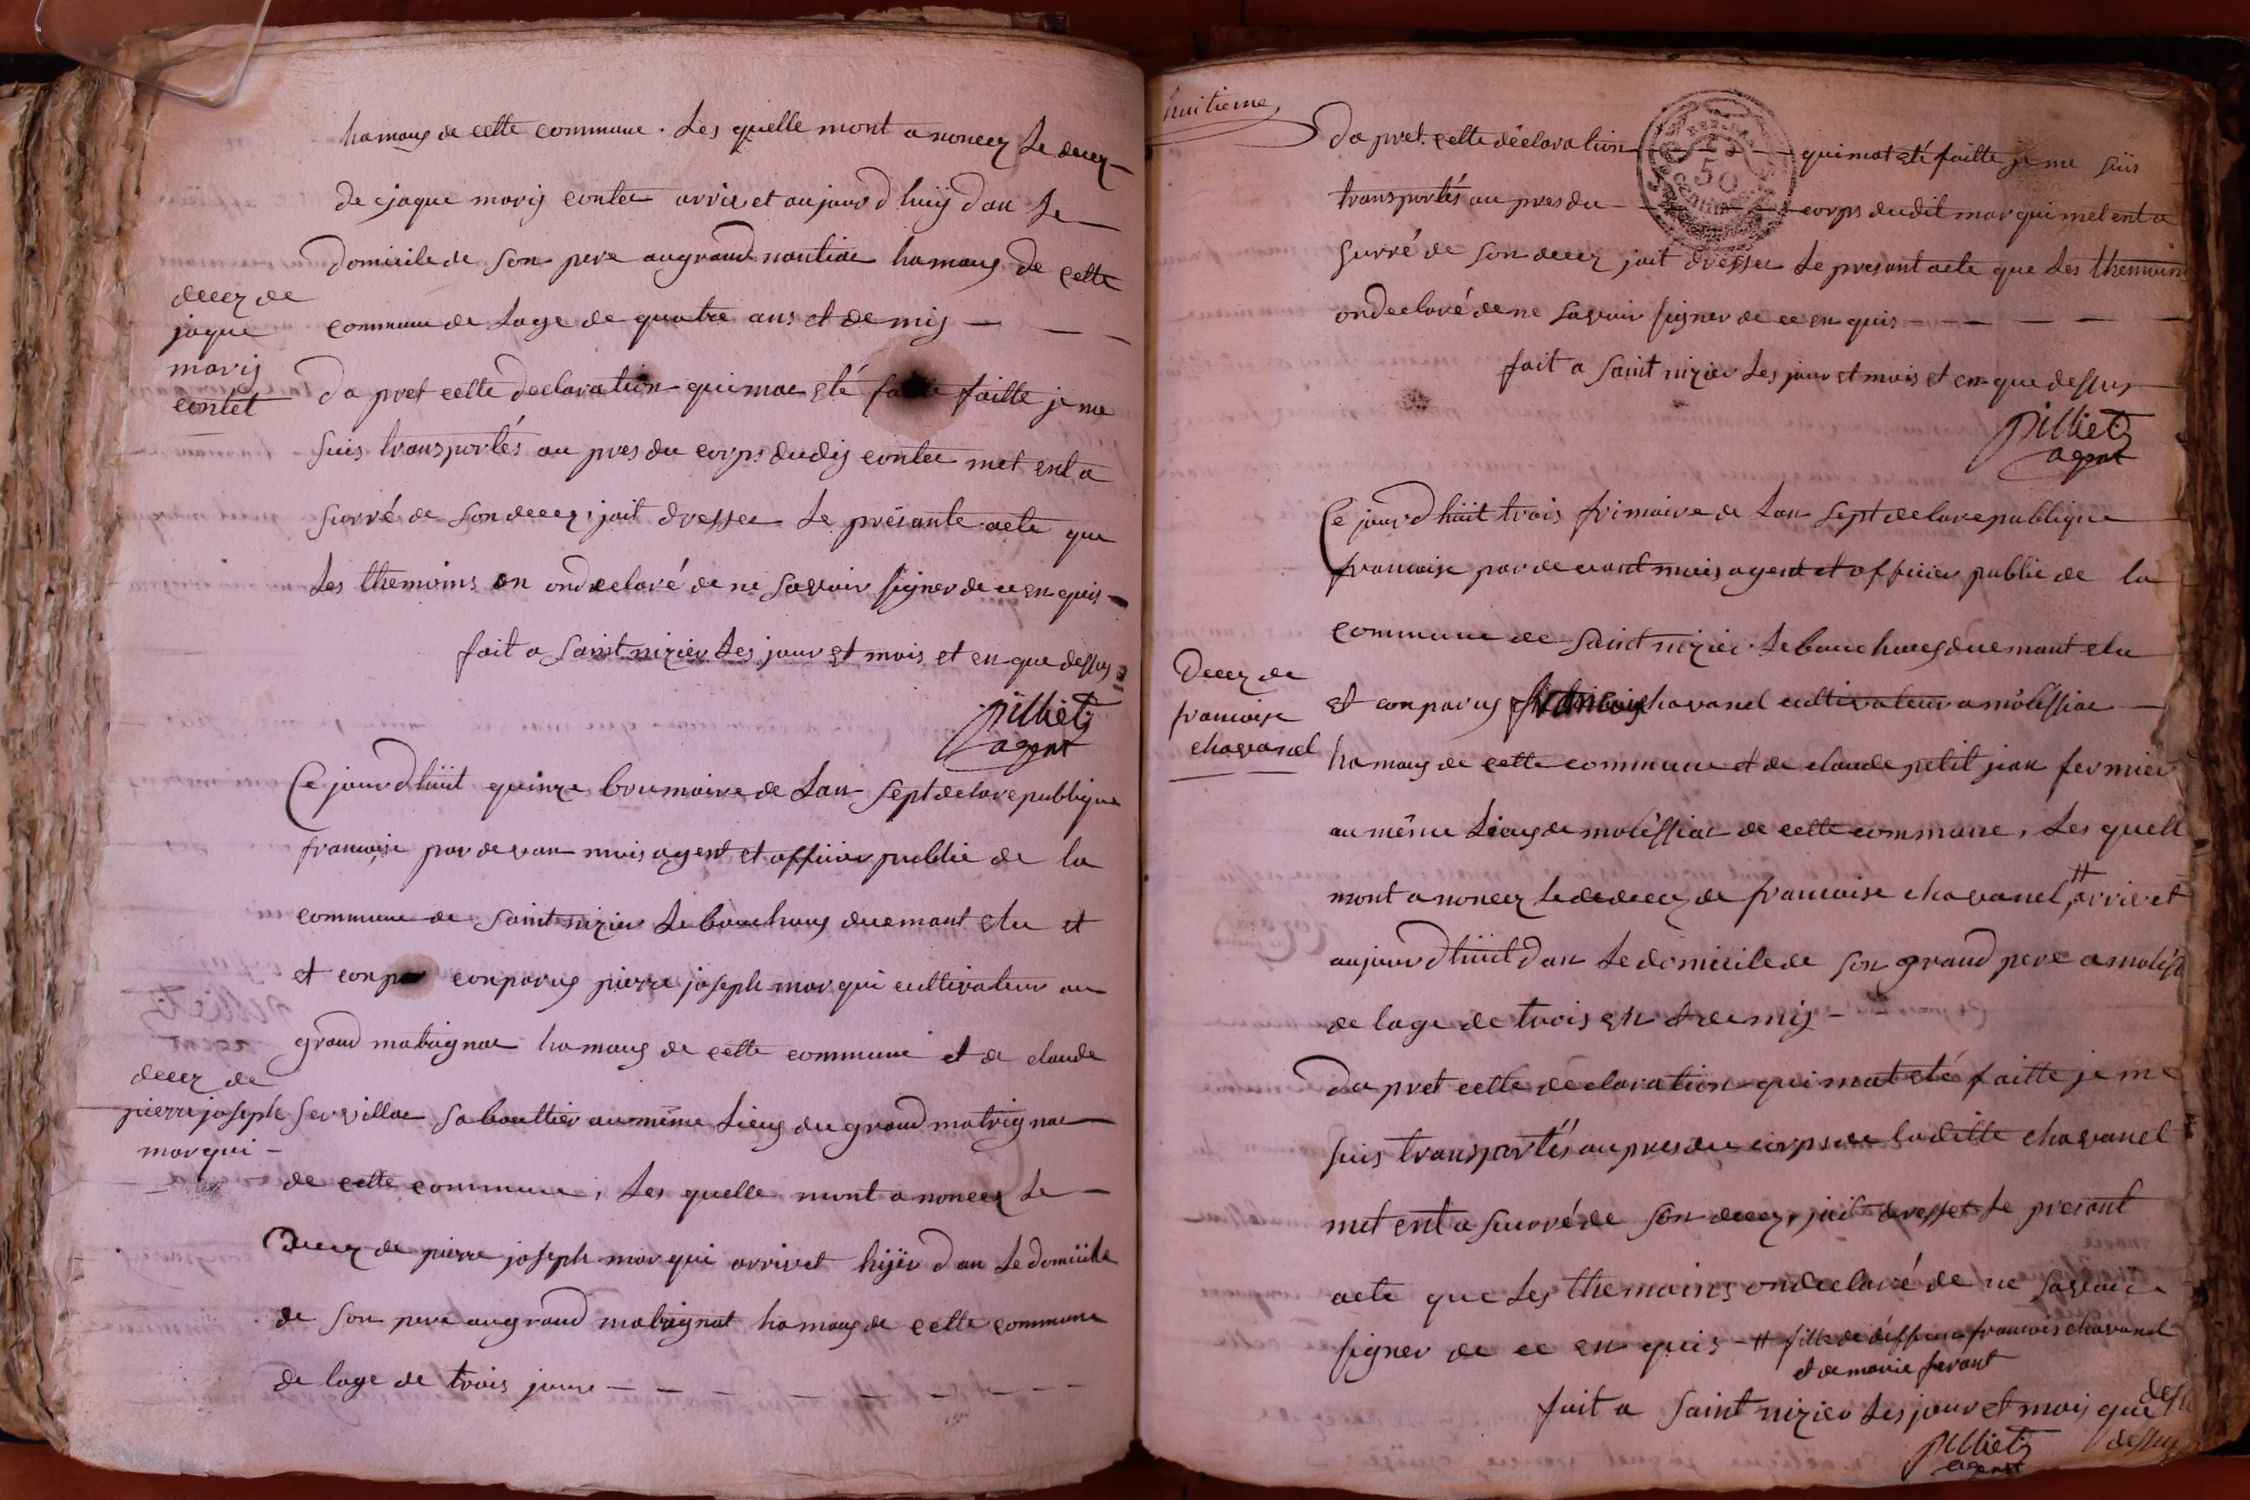 hamaus de cette commune . Les quelle mont a noncez Le decez
de jaque maris contet arrivet aujourd huij dan Le
domicile de son pere au grand nantiae hamaus de cette
decez de
jaque
maris
contet
commune de Lage de quatre ans et demis
Da pret cette declaration qui mae eté faitte je me
suis transportés au pres du corps dudis contet met ent a
surré de son decez, jait dresser Le présante acte que
Les themoins on ondeclaré de ne savoir signer de ce en quis
fait a saint nizier Les jour et mois et en que dessus
pilliet
agent
Ce jourd huit quinze brumaire de Lan sept de la republique
francaise par devan mois agent et officier public de la
commune de saint nizier Le bouchoux duemant elu et
et conpar conparus pierre joseph marqui cultivateur au
grand matrignae hamaus de cette commune et de claude
decez de
pierre joseph
marqui
servillae saboultier au même Lieus du grand matrignae
de cette commune, Les quelle mont a noncez Le
Decez de pierre joseph marqui arrivet hijer dan Le domicile
de son pere au grand matrignat hamaus de cette commune
de lage de trois jours
huitieme
Da pret cette déclaration qui mat eté faitte je me suis
50
transportés au pres du corps dudit marqui met ent a
surré de son decez jait dresser Le presant acte que Les themoins
ondeclaré de ne savoir signer de ce en quis
fait a saint nizier Les jour et mois et en que dessus
pilliet
agent
Ce jourd huit trois frimaire de Lan sept de la republique
francaise par devant mois agent et officier public de la
commune de saint nizier Le bouchous duemant elu
Decez de
francoise
chavanel
et conparus francois chavanel cultivateur a molissiae
hamaus de cette commune et de claude petit jean fermier
au même Lieus de molissiae de cette commune, Les quell
mont a noncez Le dedecez de francoise chavanel # arrivet
aujourd huit dan Le domicile de son grand pere a moliss
de lage de trois en et demis
Da pret cette déclaration qui mat eté faitte je me
suis transportés au pres du corps de laditte chavanel
met ent a surré de son decez, jait dresser Le presant
acte que Les themoins ondeclaré de ne savoir
signer de ce en quis # fille de deffun francois chavanel
et de marie ferant
fait a saint nizier Les jour et mois que dess
dessus
pilliet
agent